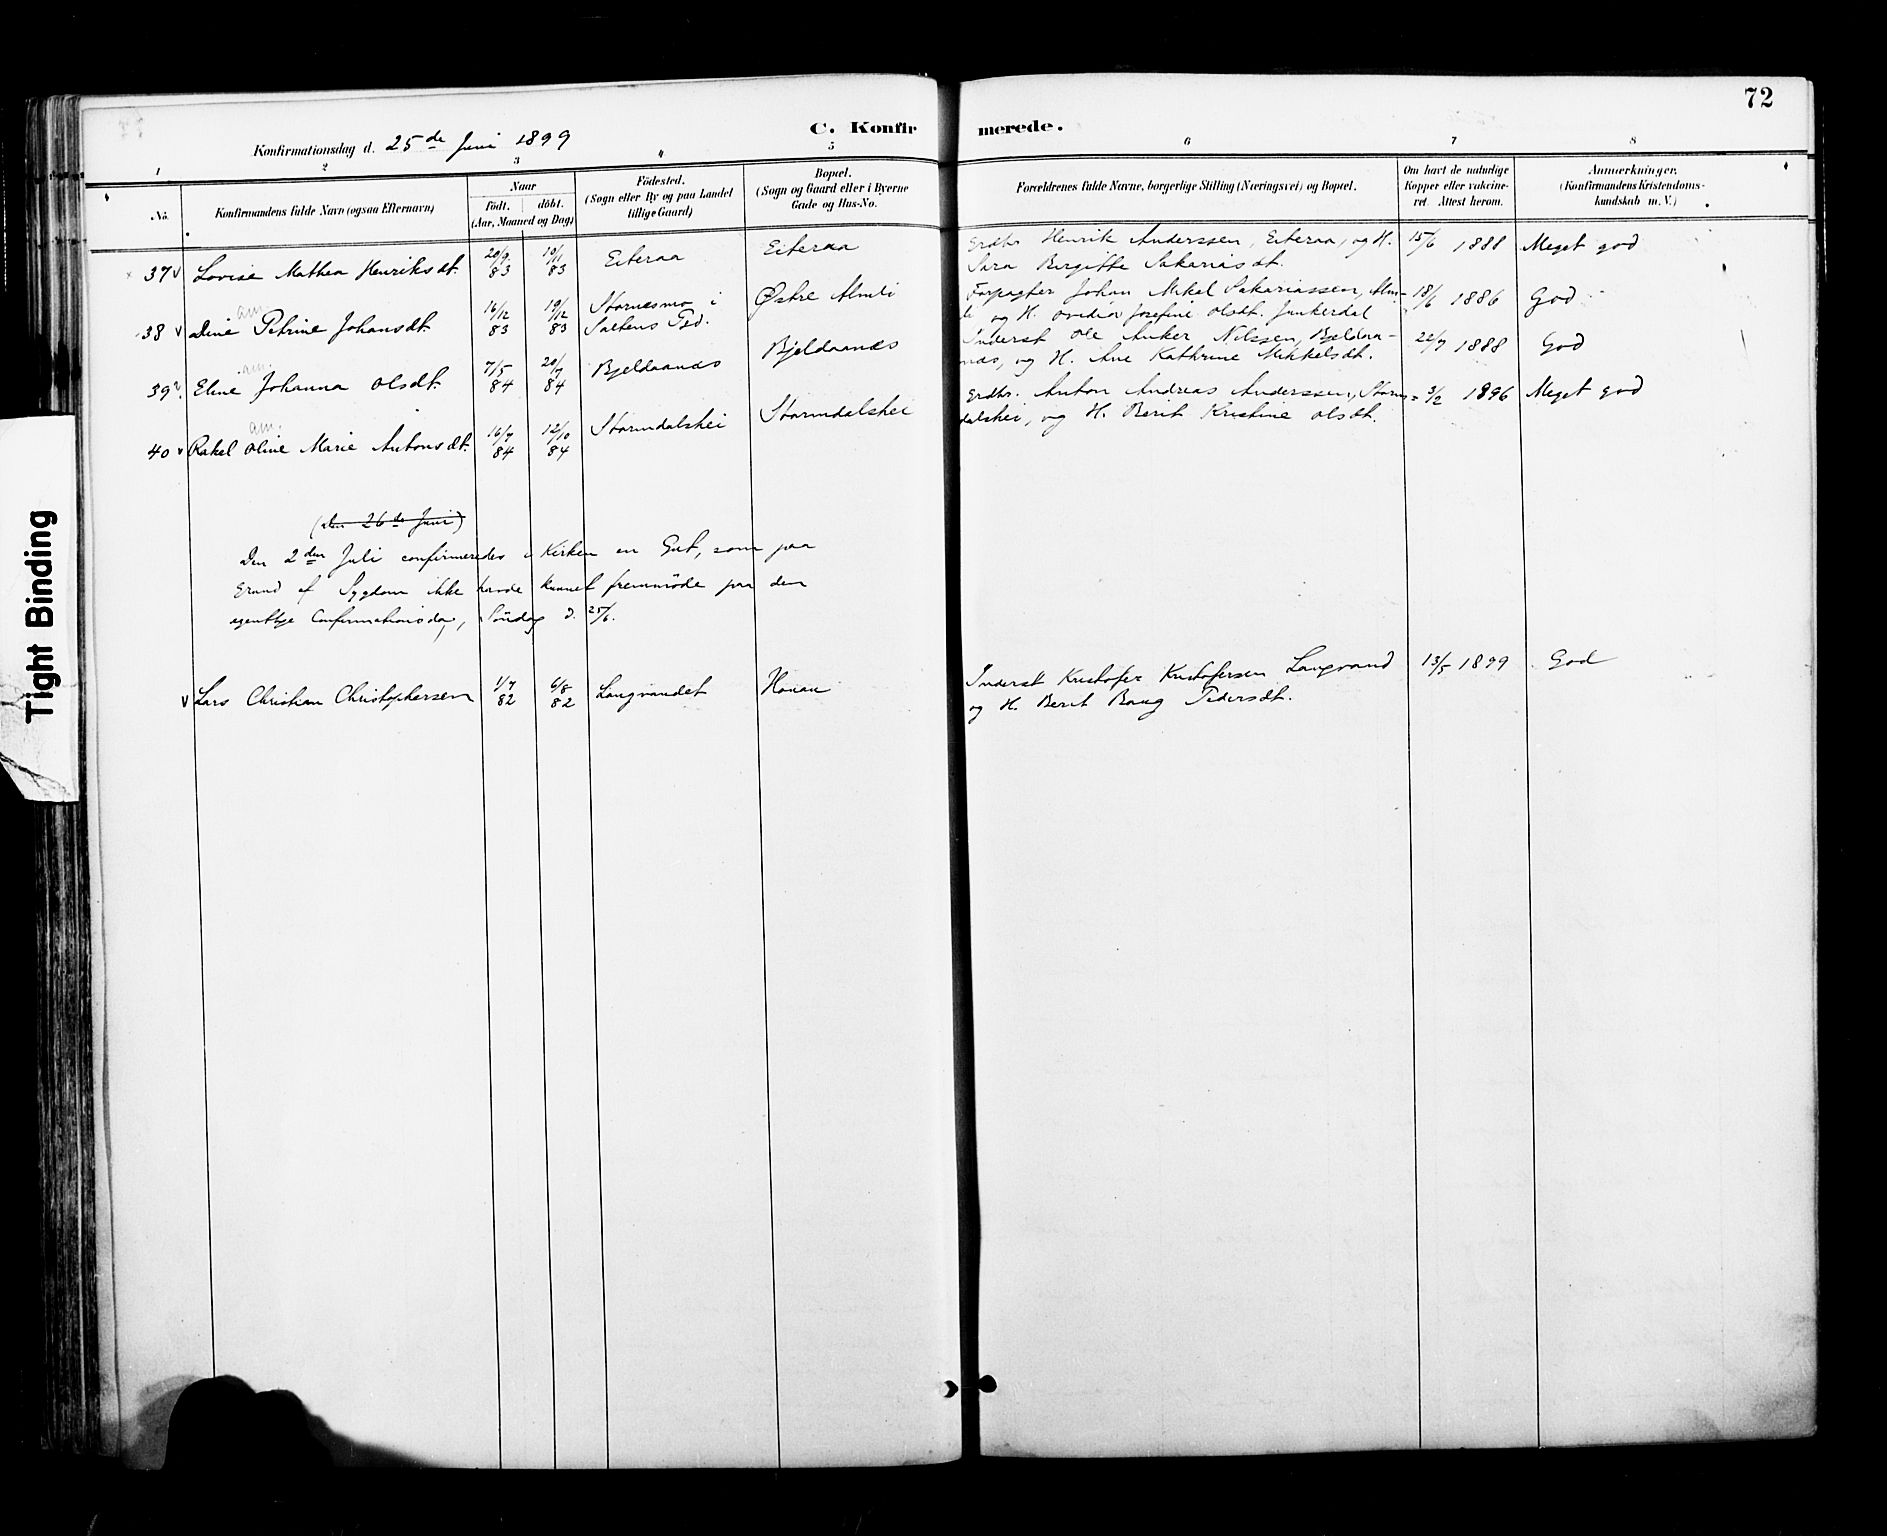 72
C. Konfirmerede.
Konfirmationsdag d. 25de Juni 1899
1 2 3 4 5 6 7 8
No.
Konfirmandens fulde Navn (ogsaa Efternavn)
Naar
födt. döbt.
(Aar, Maaned og Dag)
Födested.
(Sogn eller By og paa Landet
tillige Gaard)
Bopæl.
(Sogn og Gaard eller i Byerne
Gade og Hus-No.
Forældrenes fulde Navne, borgerlige Stilling (Næringsvei) og Bopæl.
Om havt de naturlige
Kopper eller vakcine-
ret. Attest herom.
Anmærkninger.
(Konfirmandens Kristendoms-
kundskab m. V.)
37 Lovise Mathea Henriksdt. 20/9 83 10/11 83 Eiteraa Eiteraa Grdbr. Henrik Anderssen, Eiteraa, og H. 15/6 1888 Meget god
Sara Birgitte Sakariasdt.
38 Dine Petrine Johansdt. 16/12 83 19/12 83 Stornesmo i Østre Almli Forpagter Johan Mikal Sakariassen, Alm- 18/6 1886 God
Saltens Pgd. li og H. Ovedia Josefine Olsdt. Junkerdal
39 Eline Johanna Olsdt. 7/5 84 20/7 84 Bjeldaanes Bjeldaanes Inderst Ole Anker Nilssen, Bjeldaa- 22/7 1888 God
nes, og H. Ane Kathrine Mikkelsdt.
40 Rakel Oline Marie Antonsdt. 16/7 84 12/10 84 Stormdalshei Stormdalshei Grdbr. Anton Andreas Anderssen, Storm- 3/2 1896 Meget god
dalshei, og H. Berit Kristine Olsdt.
(den 26de Juni)
Den 2den Juli confirmeredes i Kirken en Gut, som paa
Grund af Sygdom ikke havde kunnet fremmöde paa den
egentlige Confirmationsdag, Söndag d. 25/6.
Lars Christian Christophersen 1/7 82 6/8 82 Langvandet Inderst Kristofer Kristofersen Langvand 13/5 1899 God
og H. Berit Baug Pedersdt.
Tight Binding